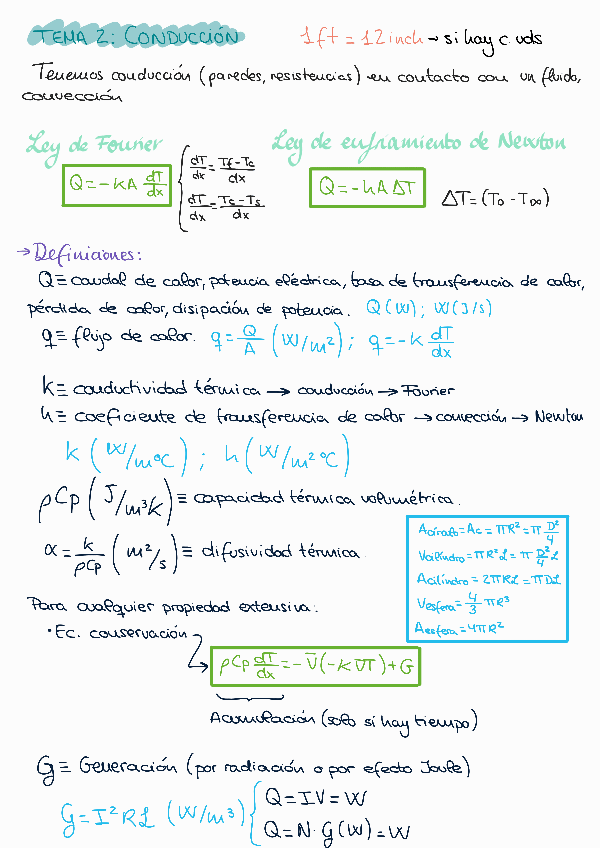 TEMA 2: CONDUCCIÓN 1ft = 12 inch → si hay c. uds
Tenemos conducción (paredes, resistencias) en contacto con un fluido,
convección
Ley de Fourier Ley de enfriamiento de Newton
Q = -kA dT/dx { dT/dx = Tf-Tc/dx Q = -hAΔT ΔT = (T0 - T∞)
dT/dx = Tc-Ts/dx
→ Definiciones:
Q ≡ caudal de calor, potencia eléctrica, tasa de transferencia de calor,
pérdida de calor, disipación de potencia. Q (W) ; W (J/s)
q ≡ flujo de calor. q = Q/A (W/m²) ; q = -k dT/dx
k ≡ conductividad térmica → conducción → Fourier
h ≡ coeficiente de transferencia de calor → convección → Newton
k (W/m°C) ; h (W/m²°C)
ρCp (J/m³K) ≡ capacidad térmica volumétrica.
α = k/ρCp (m²/s) ≡ difusividad térmica.
Acírculo = Ac = πR² = π D²/4
Vcilindro = πR²L = π D²/4 L
Acilindro = 2πRL = πDL
Vesfera = 4/3 πR³
Aesfera = 4πR²
Para cualquier propiedad extensiva:
• Ec. conservación
ρCp dT/dx = -∇(-k∇T) + G
Acumulación (solo si hay tiempo)
G ≡ Generación (por radiación o por efecto Joule)
G = I²RL (W/m³) { Q = IV = W
Q = N · G (W) = W